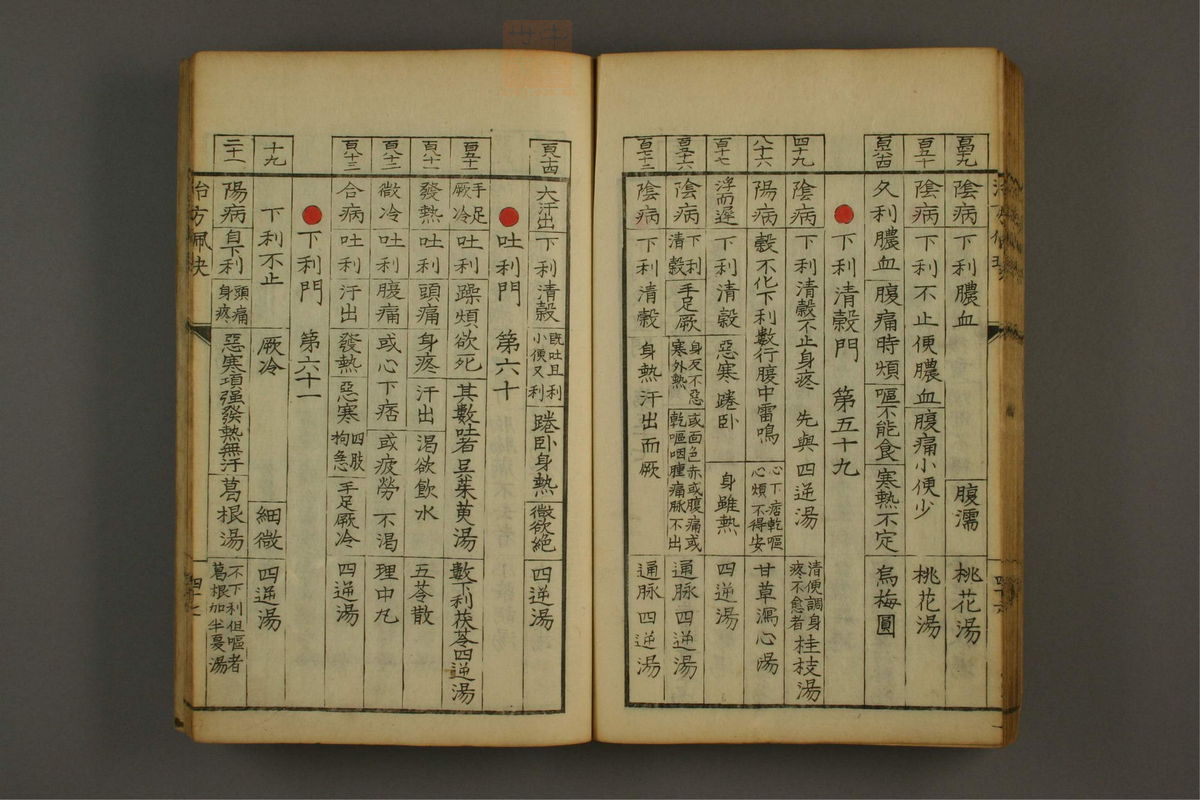 陰病 下利膿血 腹濡 桃花湯
百五十 陰病 下利不止便膿血 腹痛小便少 桃花湯
久利膿血 腹痛時煩 嘔不能食 寒熱不定 烏梅圓
下利清穀門 第五十九
四十九 陰病 下利清穀不止身疼 先與四逆湯 清便調身疼不愈者 桂枝湯
八十六 陽病 穀不化下利數行腹中雷鳴 心下痞乾嘔心煩不得安 甘草瀉心湯
百十七 浮而遲 下利清穀 惡寒踡卧 身雖熱 四逆湯
百七十六 陰病 下利清穀 手足厥 身反不惡寒外熱 或面色赤或腹痛或乾嘔咽腫痛脉不出 通脉四逆湯
百七十二 陰病 下利清穀 身熱汗出而厥 通脉四逆湯
大汗出 下利清穀 既吐且利小便又利 踡卧身熱 微欲絕 四逆湯
吐利門 第六十
百五十一 手足厥冷 吐利躁煩欲死 其數吐者吳茱萸湯 數下利茯苓四逆湯
百八十一 發熱 吐利 頭痛 身疼 汗出 渴欲飲水 五苓散
百八十二 微冷 吐利 腹痛 或心下痞 或疲勞不渴 理中丸
百八十三 合病 吐利 汗出 發熱 惡寒 四肢拘急 手足厥冷 四逆湯
下利門 第六十一
十九 下利不止 厥冷 細微 四逆湯
二十一 陽病 自下利 頭痛身疼 惡寒項强發熱無汗 葛根湯 不下利但嘔者葛根加半夏湯
治方